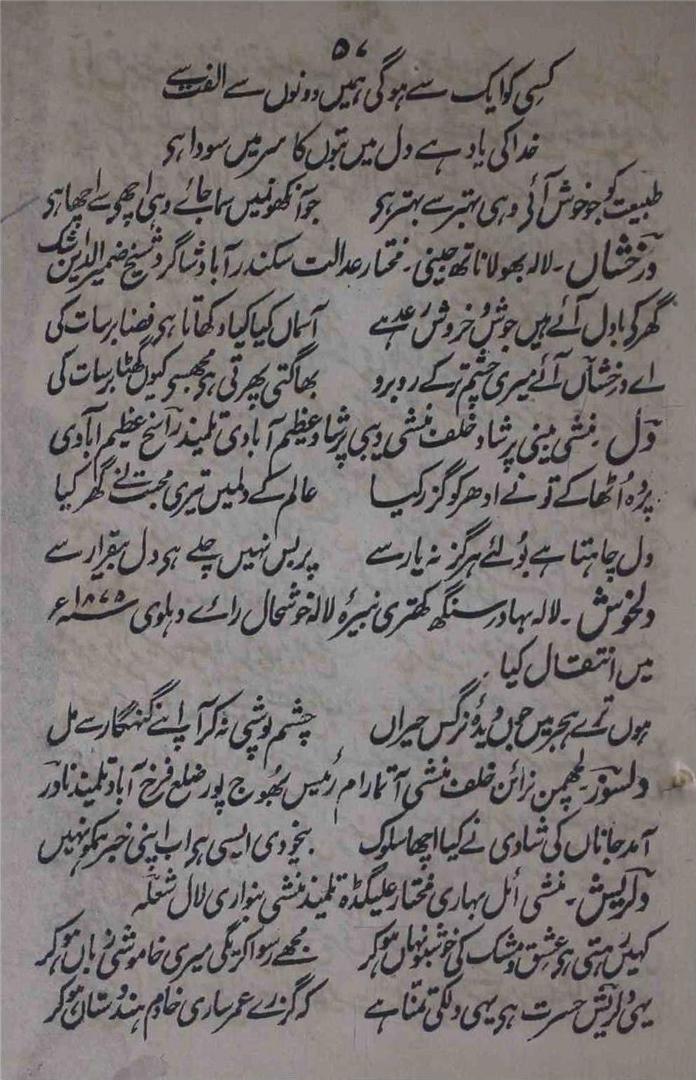 ۵۷
کسی کو ایک سے ہوگی ہمیں دونوں سے الفت ہے
خدا کی یاد ہے دل میں بتوں کا سر میں سودا ہی
طبیعت کو جو خوش آئی وہی بہتر سے بہتر ہی جو آنکھونمیں سما جائے وہی اچھوسے اچھا ہی
درخشاں۔ لالہ بھولاناتھ جینی۔ مختار عدالت سکندر آباد شاگرد شیخ ضمیر الدین اشک
گھر کی بادل آئے ہیں جوش و خروش رعد ہے آسماں کیا کیا دکھاتا ہی فضا برسات کی
اے درخشاں آئے میری چشم تر کے روبرو بھاگتی پھرتی ہی مجھسے کیوں گھٹا برسات کی
دل۔ منشی بینی پرشاد خلف منشی دیبی پرشاد عظیم آبادی تلمیذ راسخ عظیم آبادی
پردہ اٹھا کے تو نے ادھر کو گزر کیا عالم کے دلمیں تیری محبت نے گھر کیا
دل چاہتا ہے بولئے ہرگز نہ یار سے پر بس نہیں چلے ہی دل بیقرار سے
دلخوش۔ لالہ بہادر سنگھ کھتری نبیرۂ لالہ خوشحال رائے دہلوی ۱۸۷۵ء
میں انتقال کیا۔
ہوں ترے ہجر میں جوں دیدۂ نرگس حیراں چشم پوشی نہ کر آ اپنے گنہگار سے مل
دلسوز۔ لچھمن نرائن خلف منشی آتمارام رئیس بھوج پور ضلع فرخ آباد تلمیذ نادر
آمد جاناں کی شادی نے کیا اچھا سلوک بیخودی ایسی ہی اب اپنی خبر ہمکو نہیں
دلریش۔ منشی اٹل بہاری مختار علیگڈہ تلمیذ منشی بنواری لال شعلہ
کہیں رہتی ہی عشق و مشک کی خوشبو نہاں ہو کر مجھے رسوا کریگی میری خاموشی زباں ہو کر
یہی دلریش حسرت ہی یہی دلکی تمنا ہے کہ گزرے عمر ساری خادم ہندوستاں ہو کر